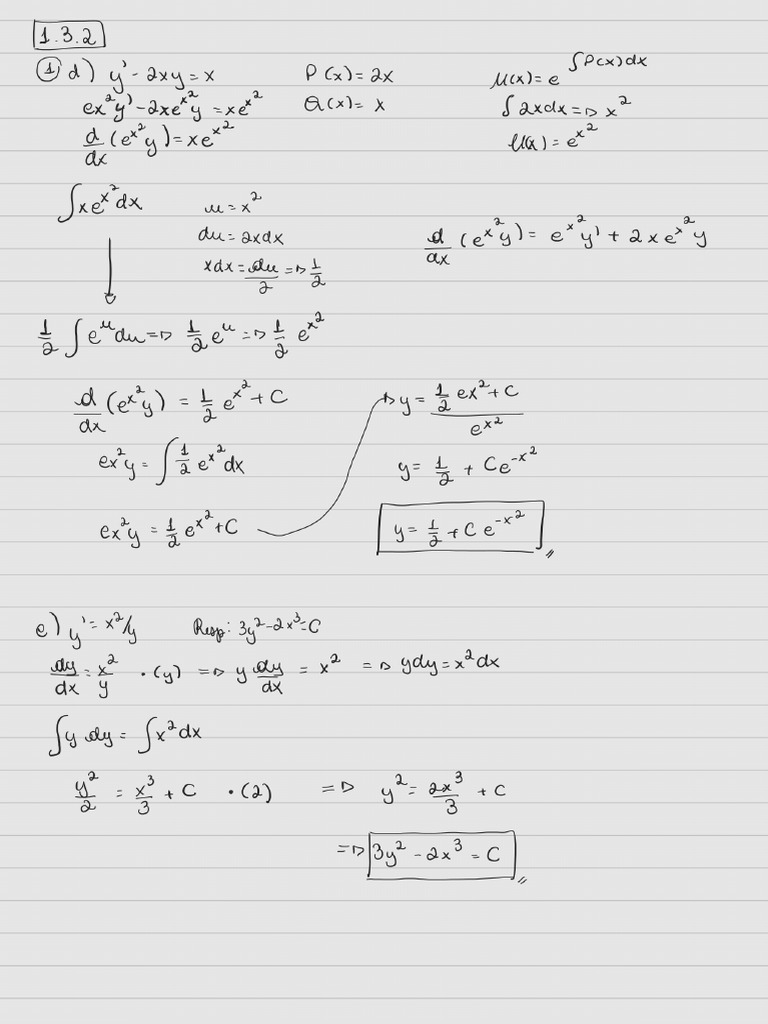 1.3.2
① d) y' - 2xy = x
P(x) = 2x
μ(x) = e^∫P(x)dx
ex²y' - 2xe^x²y = xe^x²
Q(x) = x
∫2xdx => x²
d/dx (e^x²y) = xe^x²
μ(x) = e^x²
∫xe^x²dx
u = x²
du = 2xdx
d/dx (e^x²y) = e^x²y' + 2xe^x²y
xdx = du/2 => 1/2
1/2 ∫e^u du => 1/2 e^u => 1/2 e^x²
d/dx (e^x²y) = 1/2 e^x² + C
ex²y = ∫1/2 e^x²dx
ex²y = 1/2 e^x² + C
y = (1/2 ex² + C)/e^x²
y = 1/2 + Ce^-x²
y = 1/2 + C e^-x²
e) y' = x²/y
Resp: 3y² - 2x³ = C
dy/dx = x²/y · (y) => y dy/dx = x² => ydy = x²dx
∫y dy = ∫x²dx
y²/2 = x³/3 + C · (2) => y² = 2x³/3 + C
=> 3y² - 2x³ = C